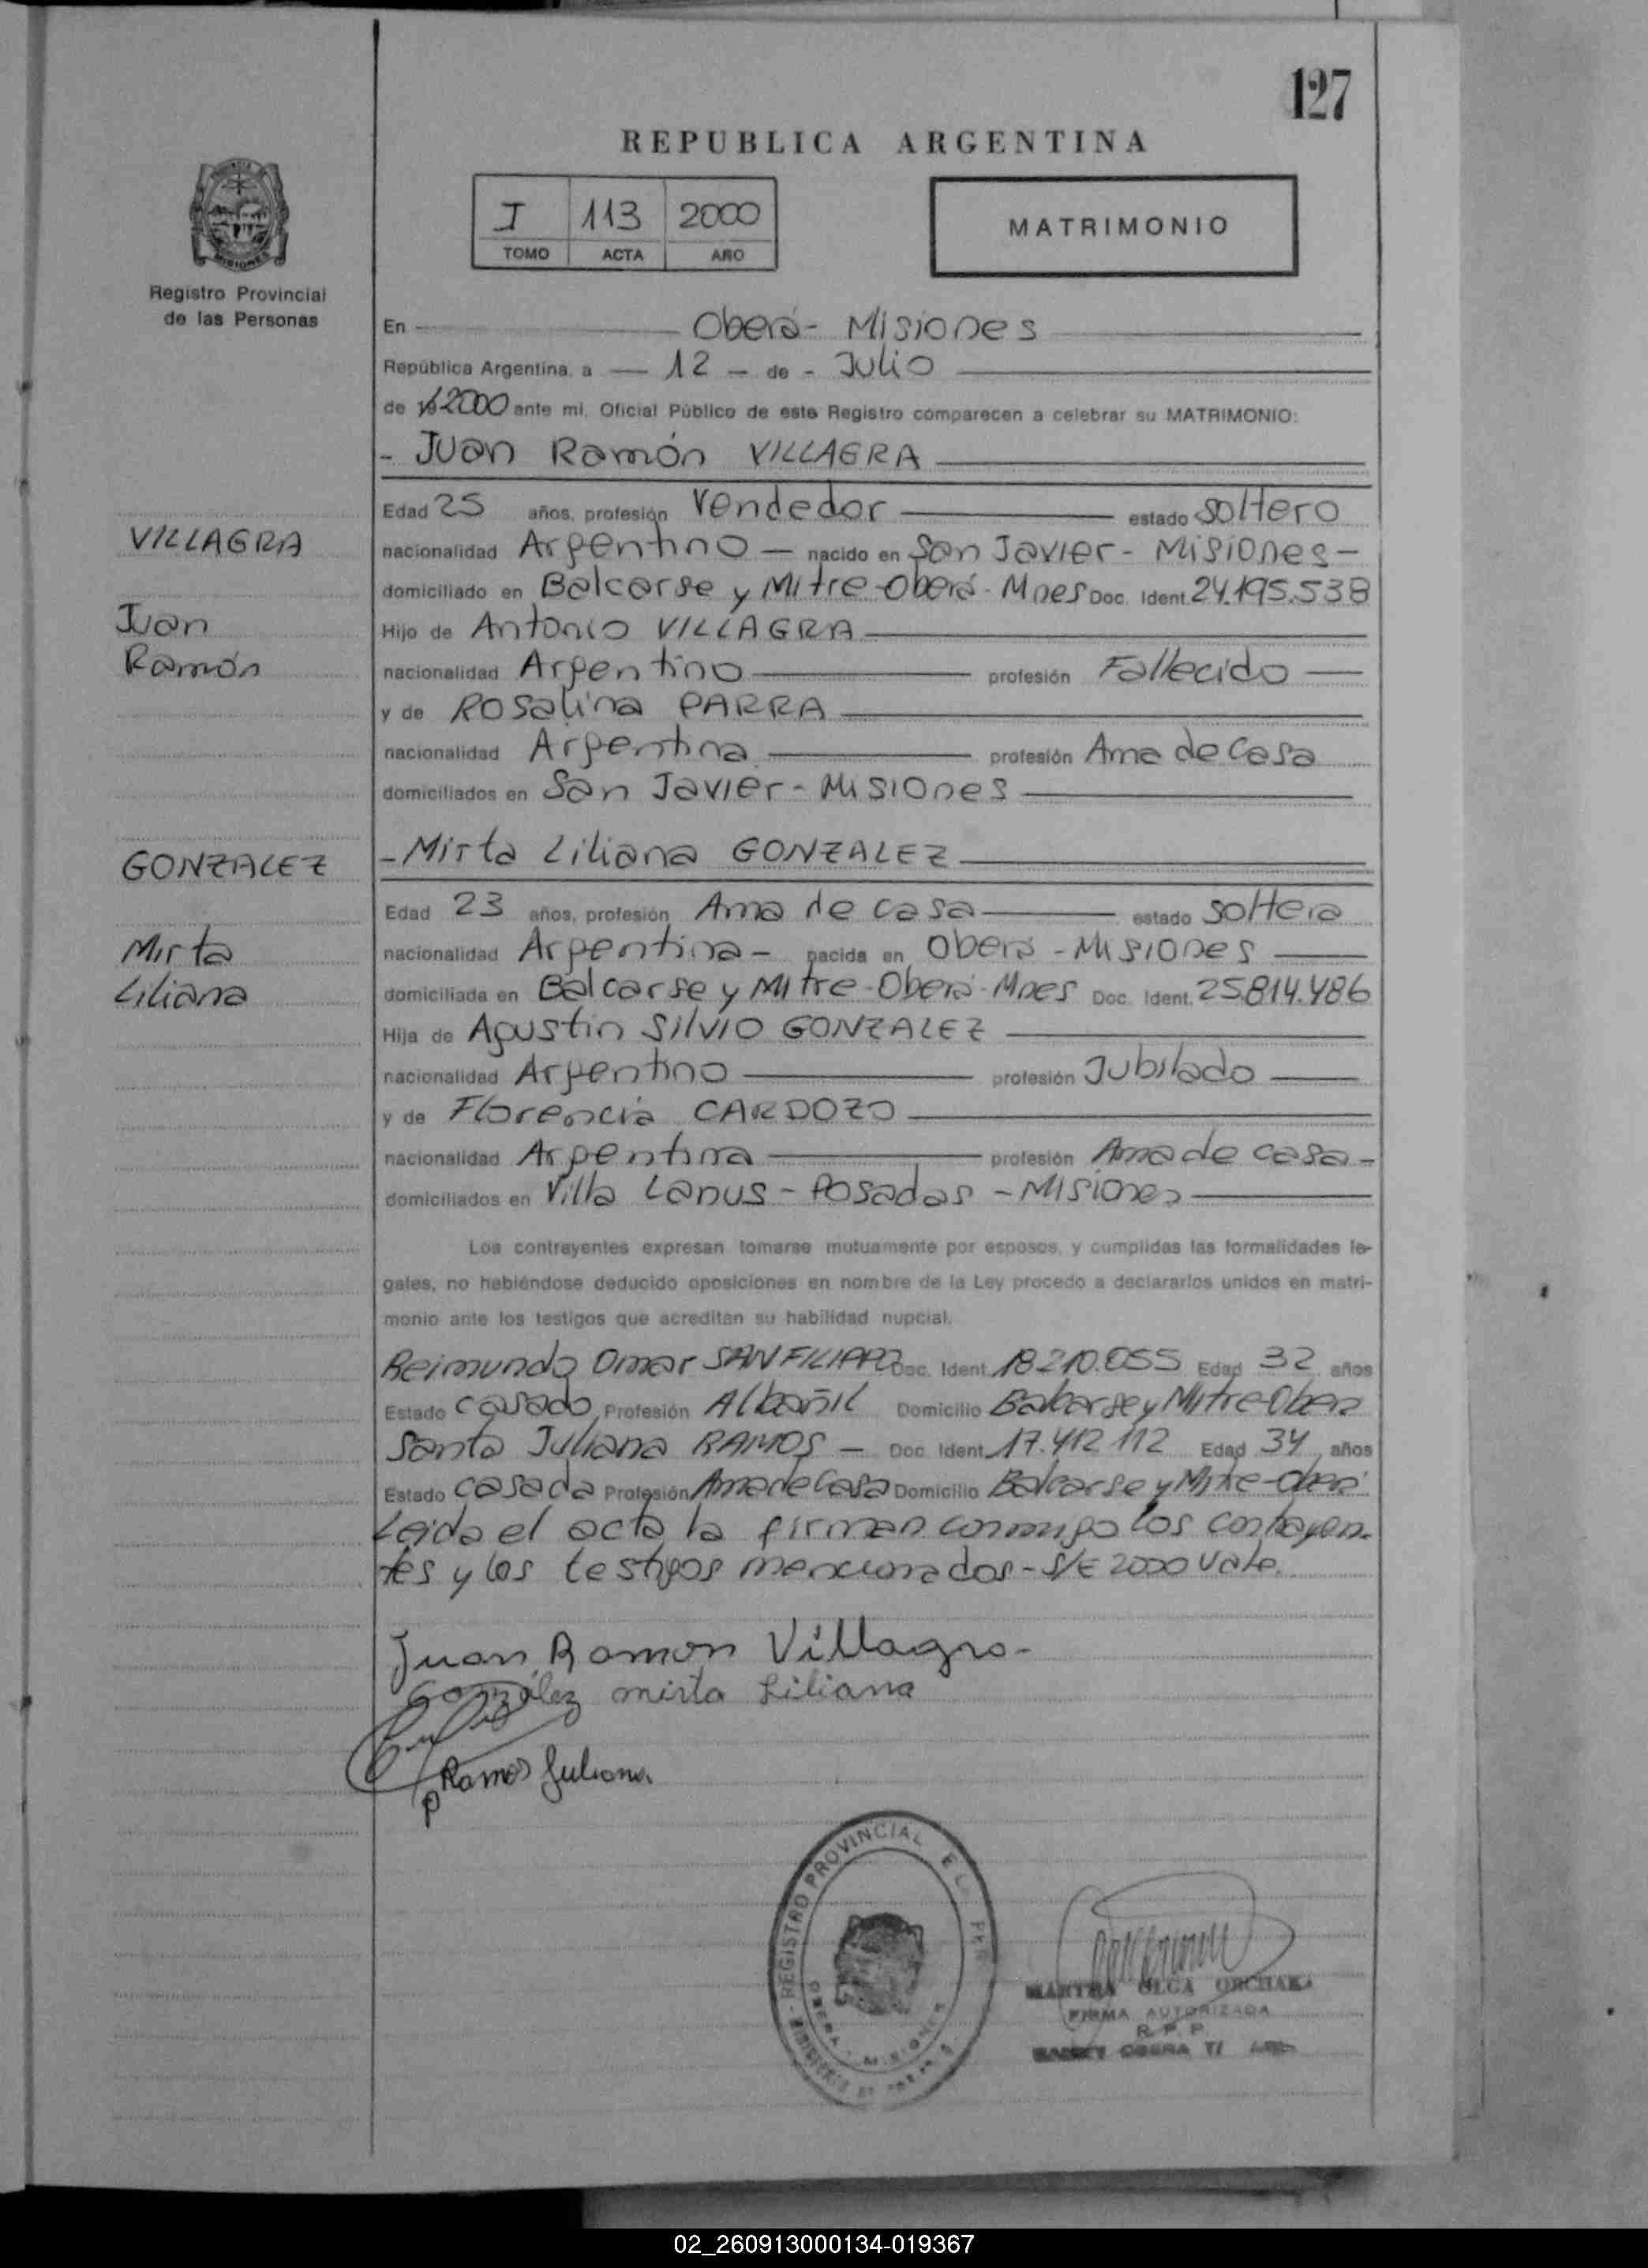 127
REPUBLICA ARGENTINA
I 113 2000
TOMO ACTA AÑO
MATRIMONIO
MISIONES
Registro Provincial
de las Personas
En Oberá - Misiones
República Argentina, a 12 de Julio
de 19 2000 ante mí, Oficial Público de este Registro comparecen a celebrar su MATRIMONIO:
- Juan Ramón VILLAGRA
VILLAGRA
Juan
Ramón
Edad 25 años, profesión Vendedor estado soltero
nacionalidad Argentino - nacido en San Javier - Misiones -
domiciliado en Balcarse y Mitre - Oberá - Mnes Doc. Ident. 24.195.538
Hijo de Antonio VILLAGRA
nacionalidad Argentino profesión Fallecido
y de Rosalina PARRA
nacionalidad Argentina profesión Ama de Casa
domiciliados en San Javier - Misiones
GONZALEZ
Mirta
Liliana
- Mirta Liliana GONZALEZ
Edad 23 años, profesión Ama de casa estado soltera
nacionalidad Argentina - nacida en Oberá - Misiones
domiciliada en Balcarse y Mitre - Oberá - Mnes Doc. Ident. 25.814.486
Hija de Agustin Silvio GONZALEZ
nacionalidad Argentino profesión Jubilado
y de Florencia CARDOZO
nacionalidad Argentina profesión Ama de casa -
domiciliados en Villa Lanus - Posadas - Misiones
Los contrayentes expresan tomarse mutuamente por esposos, y cumplidas las formalidades le-
gales, no habiéndose deducido oposiciones en nombre de la Ley procedo a declararlos unidos en matri-
monio ante los testigos que acreditan su habilidad nupcial.
Reimundo Omar SANFILIPPO Doc. Ident. 18.210.055 Edad 32 años
Estado casado Profesión Albañil Domicilio Balcarse y Mitre - Oberá
Santa Juliana RAMOS - Doc. Ident. 17.412.112 Edad 34 años
Estado casada Profesión Ama de Casa Domicilio Balcarse y Mitre - Oberá
Leida el acta la firman conmigo los contrayen-
tes y los testigos mencionados - S/E 2000 Vale.
Juan Ramon Villagra -
González mirta Liliana
Ramos Juliana
REGISTRO PROVINCIAL
OBERA - MISIONES
MARTHA OLGA ORCHAK
FIRMA AUTORIZADA
R. P. P.
OBERA
02_260913000134-019367